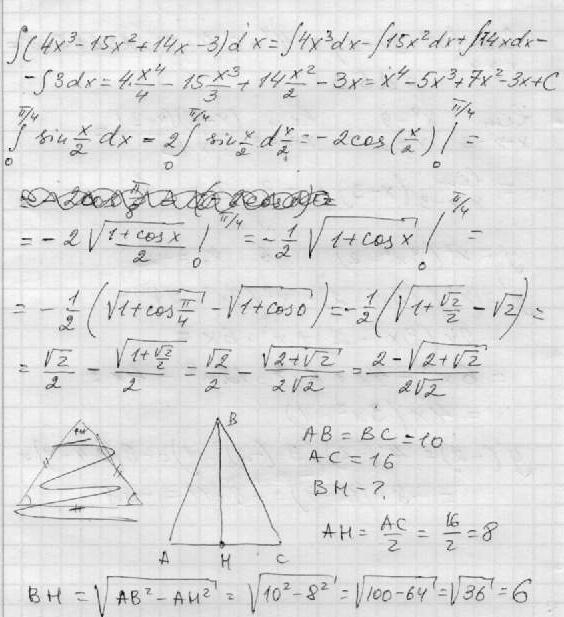 ∫(4x³-15x²+14x-3)dx=∫4x³dx-∫15x²dx+∫14xdx-
-∫3dx=4x⁴/4-15x³/3+14x²/2-3x=x⁴-5x³+7x²-3x+C
∫₀^(π/4) sin x/2 dx=2∫₀^(π/4) sin x/2 d x/2=-2cos(x/2)|₀^(π/4)=
=-2√(1+cosx)/2|₀^(π/4)=-1/2√(1+cosx)|₀^(π/4)=
=-1/2(√(1+cos π/4)-√(1+cos0))=-1/2(√(1+√2/2)-√2)=
=√2/2-√(1+√2/2)/2=√2/2-√(2+√2)/(2√2)=(2-√(2+√2))/(2√2)
B
AB=BC=10
AC=16
BH-?
AH=AC/2=16/2=8
A H C
BH=√(AB²-AH²)=√(10²-8²)=√(100-64)=√36=6